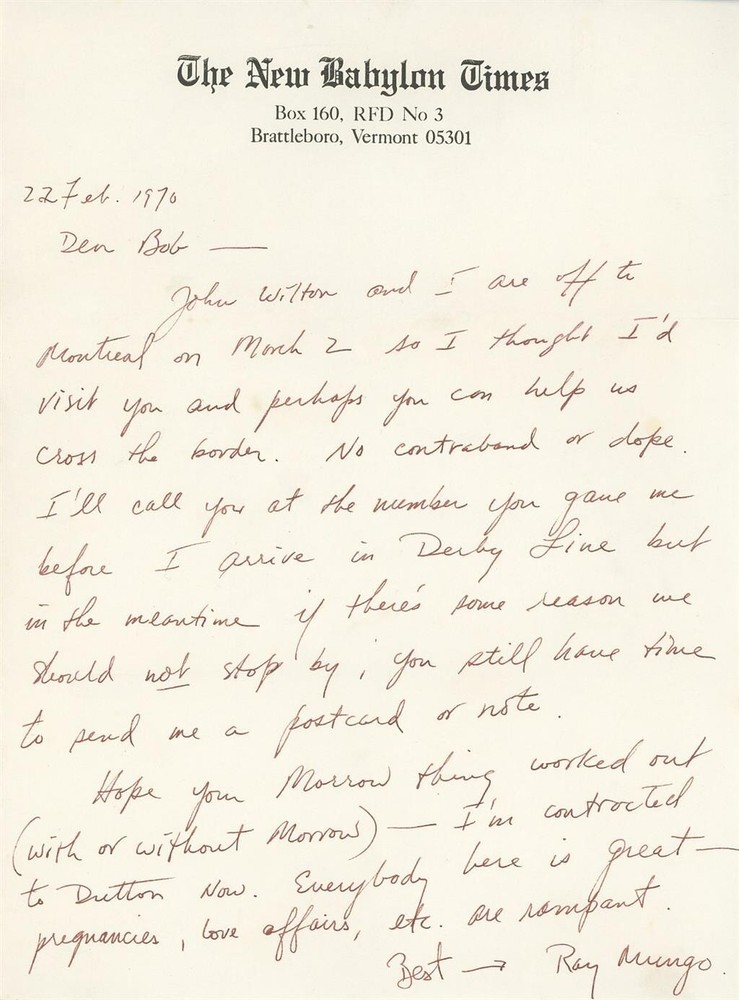 The New Babylon Times
Box 160, RFD No 3
Brattleboro, Vermont 05301
22 Feb. 1970
Dear Bob —
John Wilton and I are off to
Montreal on March 2 so I thought I'd
visit you and perhaps you can help us
cross the border. No contraband or dope.
I'll call you at the number you gave me
before I arrive in Derby Line but
in the meantime if there's some reason we
should not stop by, you still have time
to send me a postcard or note.
Hope your Morrow thing worked out
(with or without Morrow) — I'm contracted
to Dutton now. Everybody here is great —
pregnancies, love affairs, etc. are rampant.
Best → Ray Mungo.